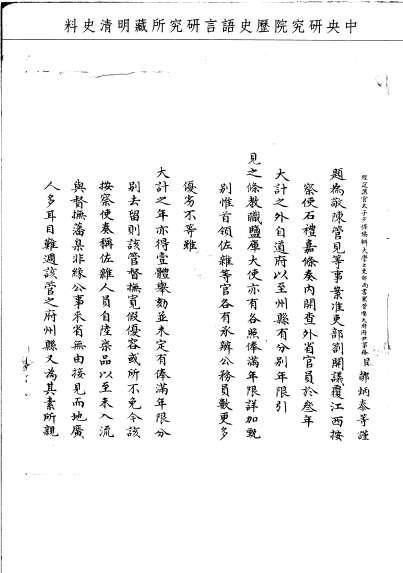 中央研究院歷史語言研究所藏明清史料
經筵講官太子少保協辦大學士吏部尚書兼管順天府府尹事務臣鄒炳泰等謹
題為敬陳管見等事案准吏部劄開議覆江西按
察使石禮嘉條奏內開查外省官員於叁年
大計之外自道府以至州縣有分別年限引
見之條教職鹽庫大使亦有各照俸滿年限詳加甄
別惟首領佐雜等官各有承辦公務員數更多
優劣不等雖
大計之年亦得壹體舉劾並未定有俸滿年限分
別去留則該管督撫寬假優容或所不免今該
按察使奏稱佐雜人員自陸柒品以至未入流
與督撫藩臬非緣公事來省無由接見而地廣
人多耳目難週該管之府州縣又為其素所親